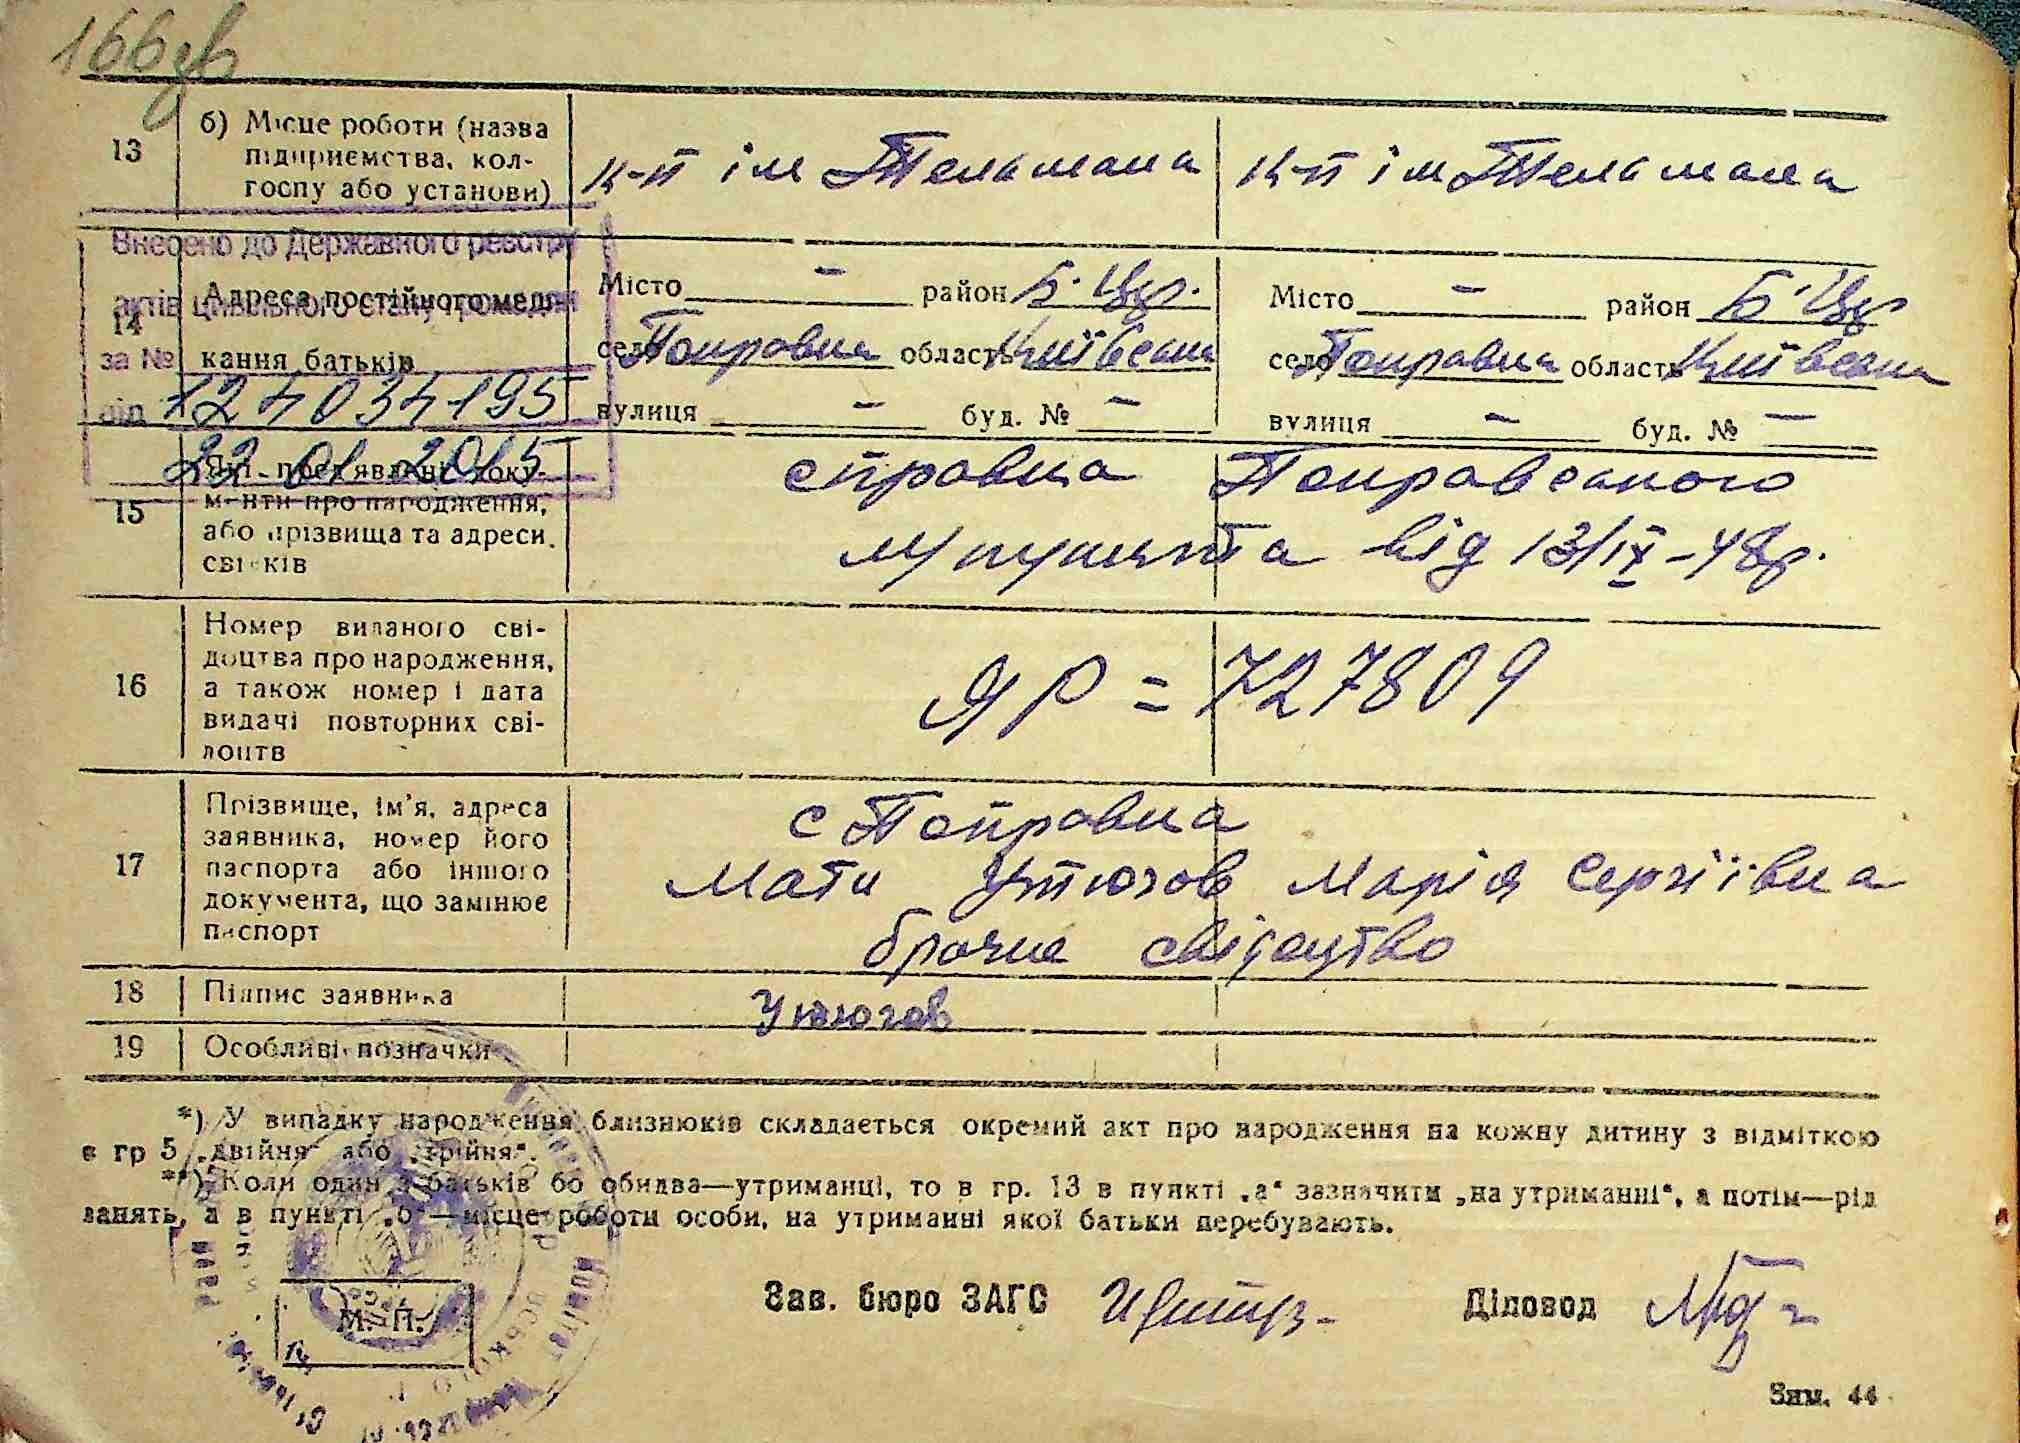 166зв
13 б) Місце роботи (назва
підприємства, кол-
госпу або установи)
к-п ім Тельмана к-п ім Тельмана
Внесено до Державного реєстру
актів цивільного стану громадян
за № 124034195
від 22 01 2015
14 Адреса постійного меш-
кання батьків
Місто — район Б. Цер.
село Токровка область Київська
вулиця — буд. № —
Місто — район Б. Цер
село Токровка область Київська
вулиця — буд. № —
15 Які пред'явлені доку-
менти про народження,
або прізвища та адреси
свідків
справка
від 13/IX-48р.
16 Номер виданого сві-
доцтва про народження,
а також номер і дата
видачі повторних сві-
доцтв
ЯР = 727809
17 Прізвище, ім'я, адреса
заявника, номер його
паспорта або іншого
документа, що замінює
паспорт
с
Мати Утюгов Марія Сергіївна
брачне свідоцтво
18 Підпис заявника Утюгов
19 Особливі позначки
*) У випадку народження близнюків складається окремий акт про народження на кожну дитину з відміткою
в гр 5 „двійня“ або „трійня“.
**) Коли один з батьків бо обидва—утриманці, то в гр. 13 в пункті „а“ зазначити „на утриманні“, а потім—рід
занять, а в пункті „б“—місце роботи особи, на утриманні якої батьки перебувають.
М. П.
Зав. бюро ЗАГС Діловод
Зим. 44